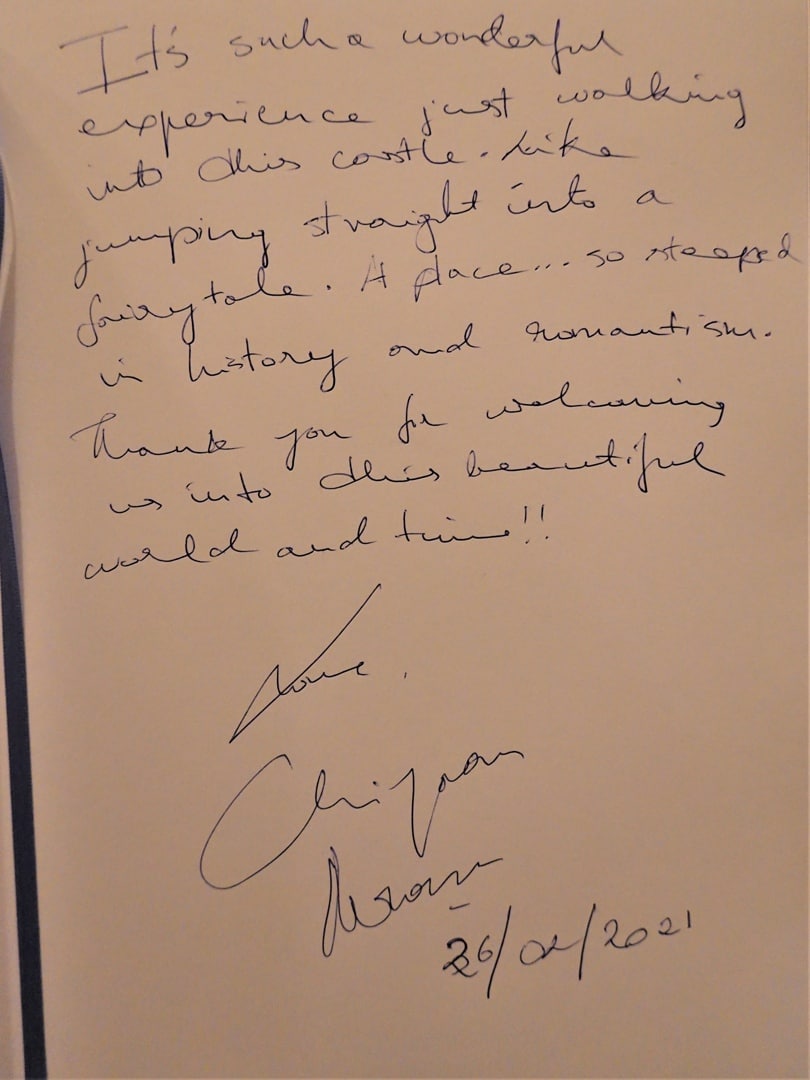 It's such a wonderful
experience just walking
into this castle. Like
jumping straight into a
fairytale. A place... so steeped
in history and romantism.
Thank you for welcoming
us into this beautiful
world and time!!
Love,
26/02/2021